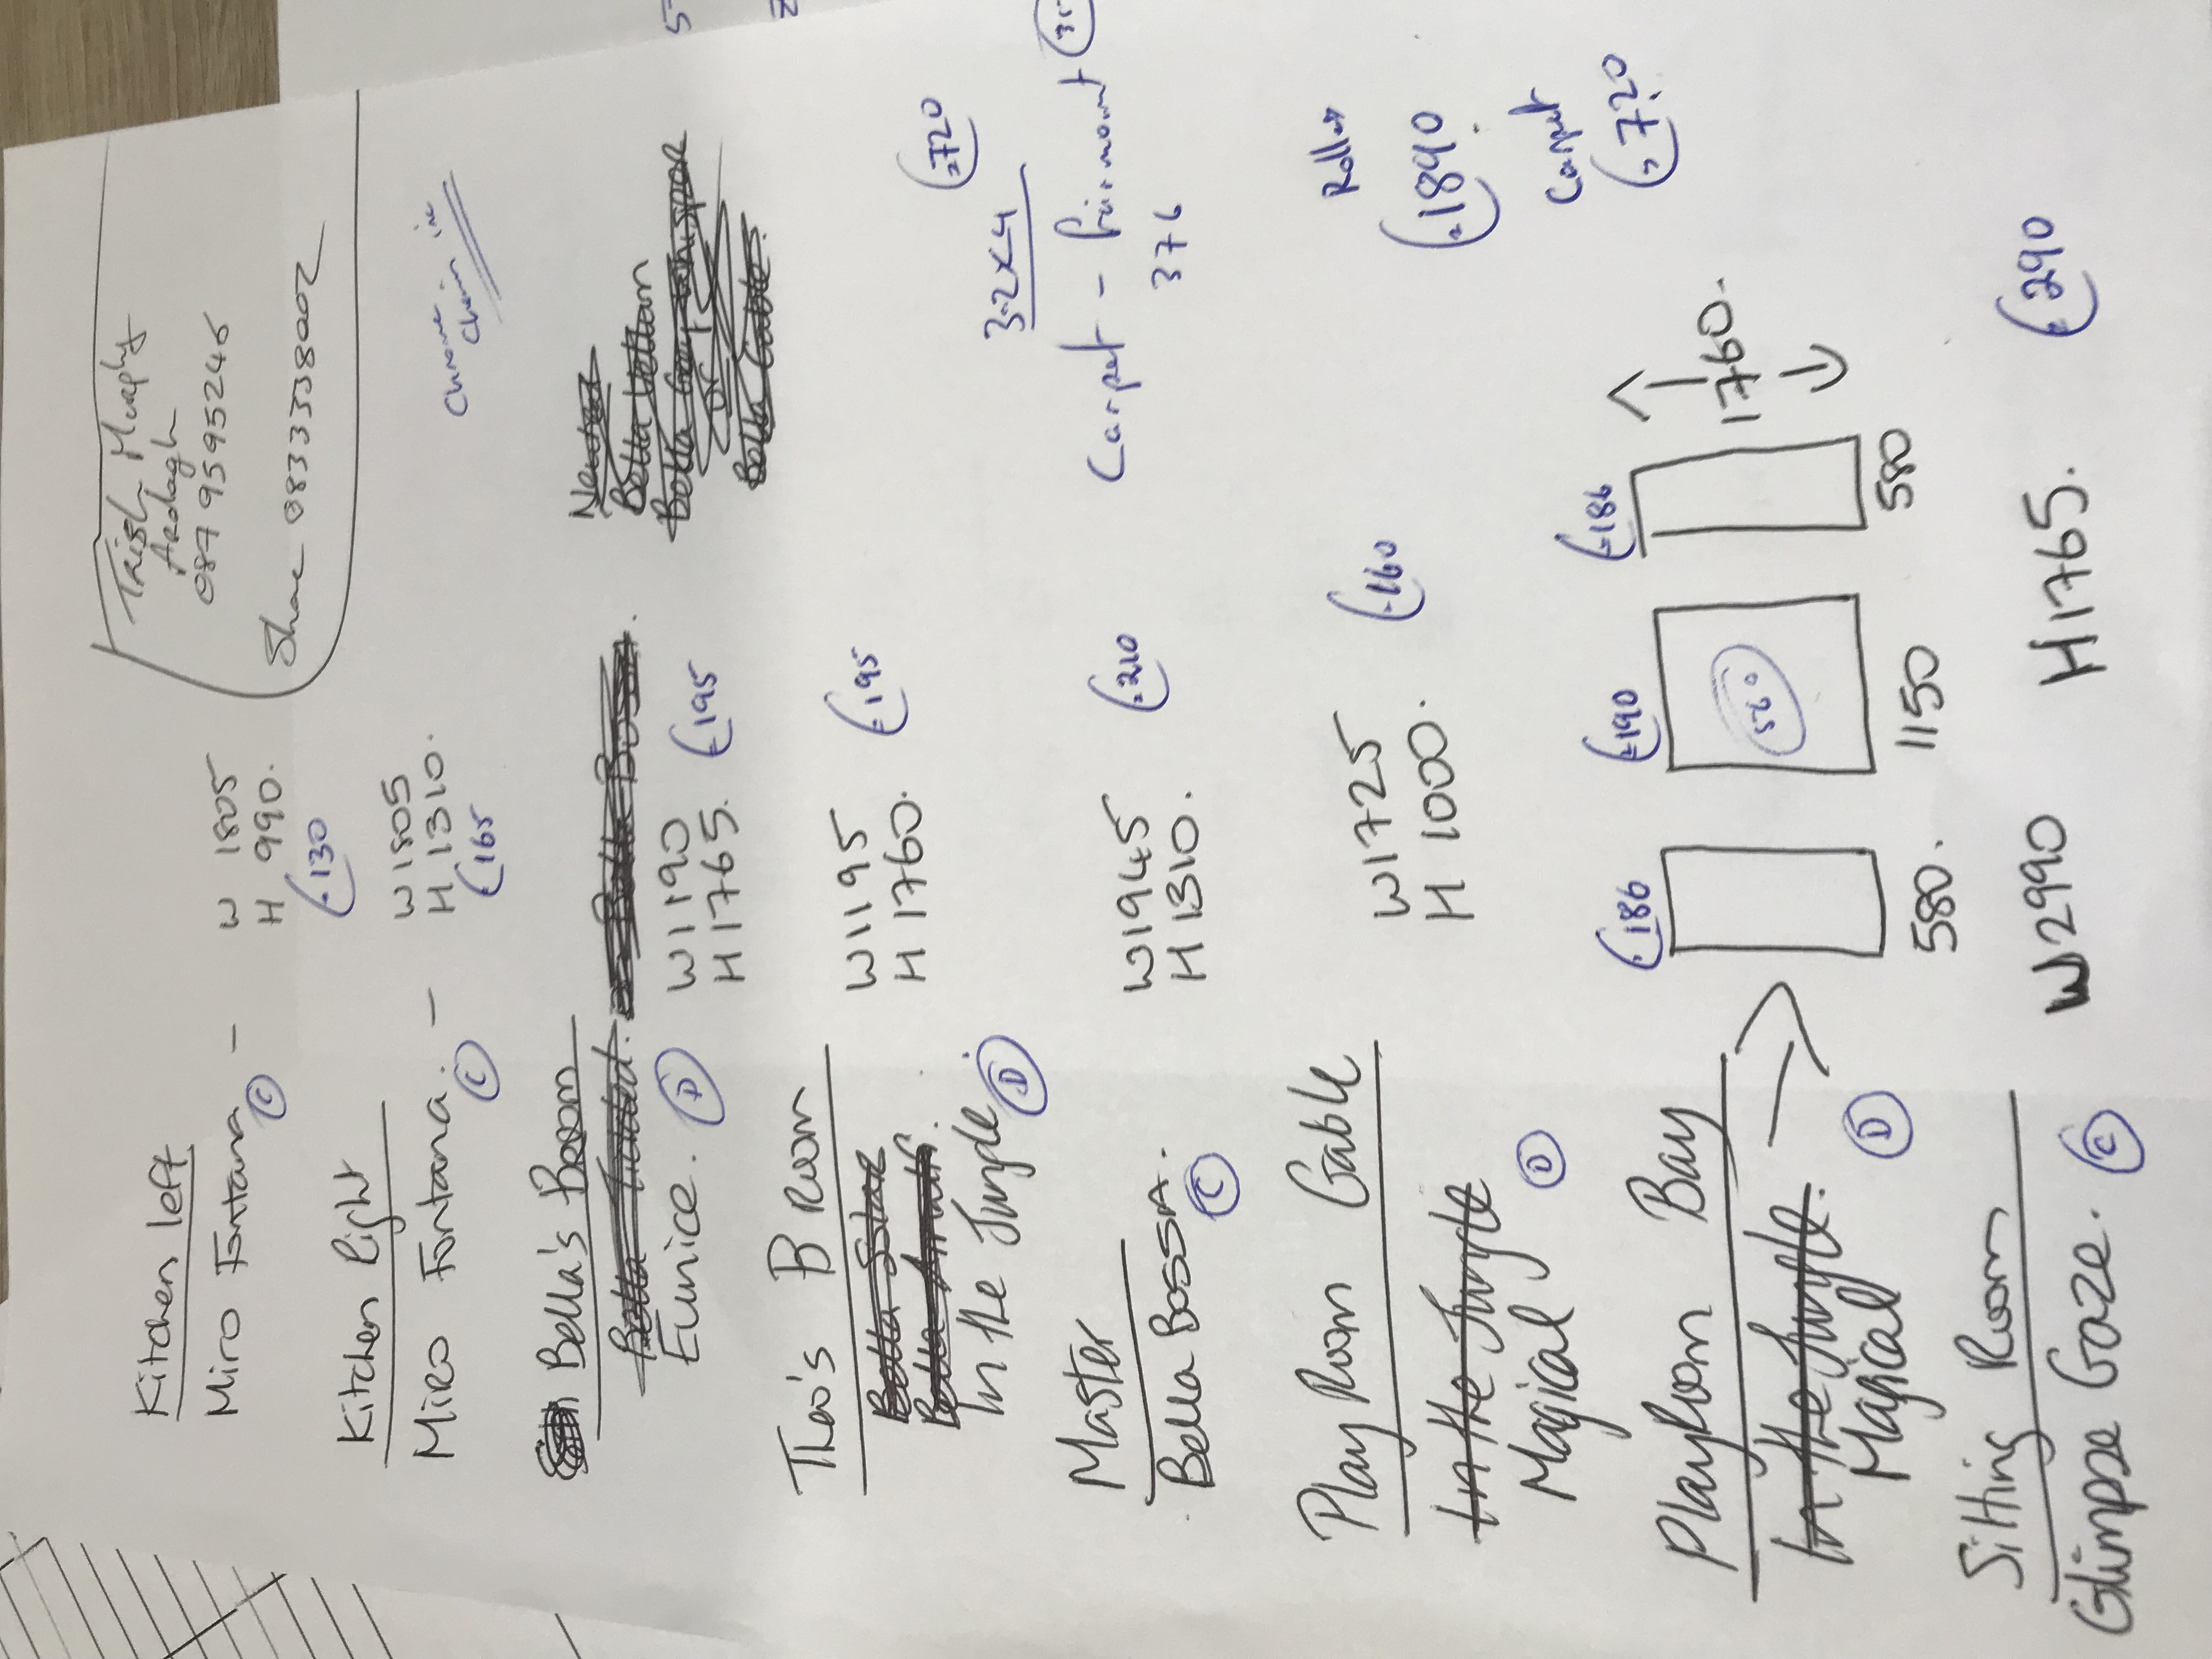 Trish Murphy
Ardagh
087 9595246
Shane 0833338002
Kitchen left
Miro Fontana - W 1805
H 990.
€130
C
Chrome
Chain inc
Kitchen Right
Miro Fontana. - W1805
H 1310.
€165
C
Bella's Room
Eunice. W1190
H1765. €195
D
Theo's B Room
W1195
H 1760. €195
In the Jungle. D
3.2x4 €720
Carpet - Fairmount
376
Master
Bella Bossa. W1945
H 1310. €210
C
Play Room Gable
In the Jungle W1725
H 1000. €160
Magical D
Roller
€1890
Carpet
€720
PlayRoom Bay
In the Jungle.
Magical D
€186 €190 €186
560
580. 1150 580
1760.
Sitting Room W2990 H1765. €290
Glimpse Gaze. C